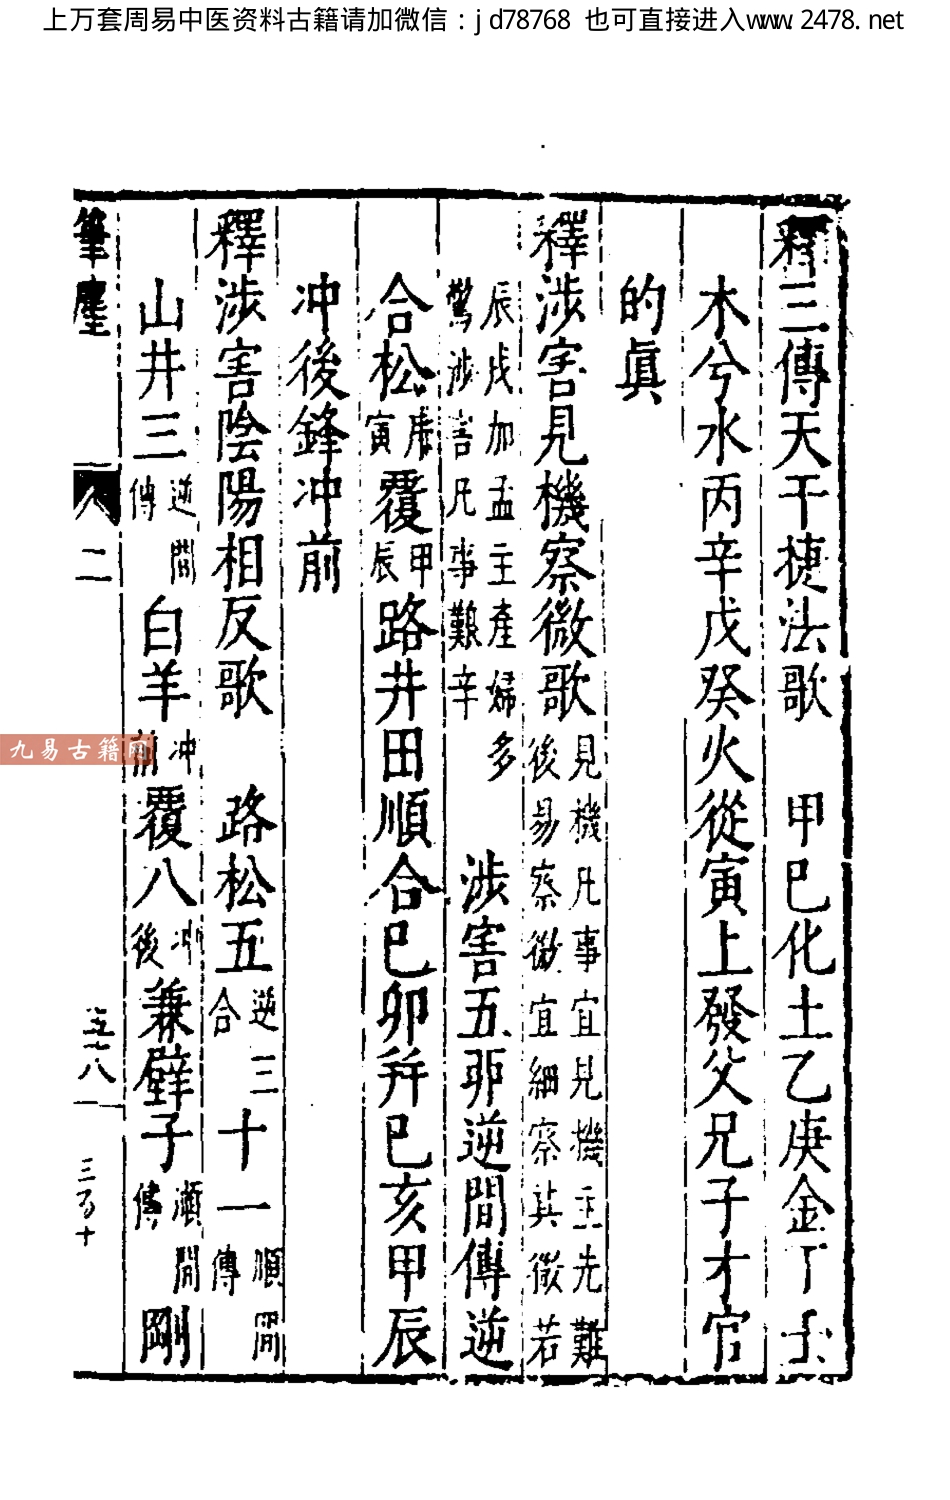 上万套周易中医资料古籍请加微信：jd78768 也可直接进入www.2478.net
釋三傳天干捷法歌　甲巳化土乙庚金丁壬
木兮水丙辛戊癸火從寅上發父兄子才官
的眞
釋涉害見機察微歌見機凡事宜見機主先難後易察微宜細察其微若
辰戌加孟主產婦多驚涉害凡事艱辛　涉害五卯逆間傳逆
合松庚寅覆甲辰路井田順合巳卯并巳亥甲辰
冲後鋒冲前
釋涉害陰陽相反歌　路松五逆三合十一順間傳
山井三逆間傳白羊冲前覆八冲後兼壁子順間傳剛
筆塵
二
三百十
九易古籍网